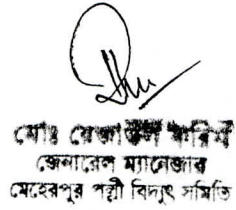 মোঃ রেজাউল করিম
জেনারেল ম্যানেজার
মেহেরপুর পল্লী বিদ্যুৎ সমিতি